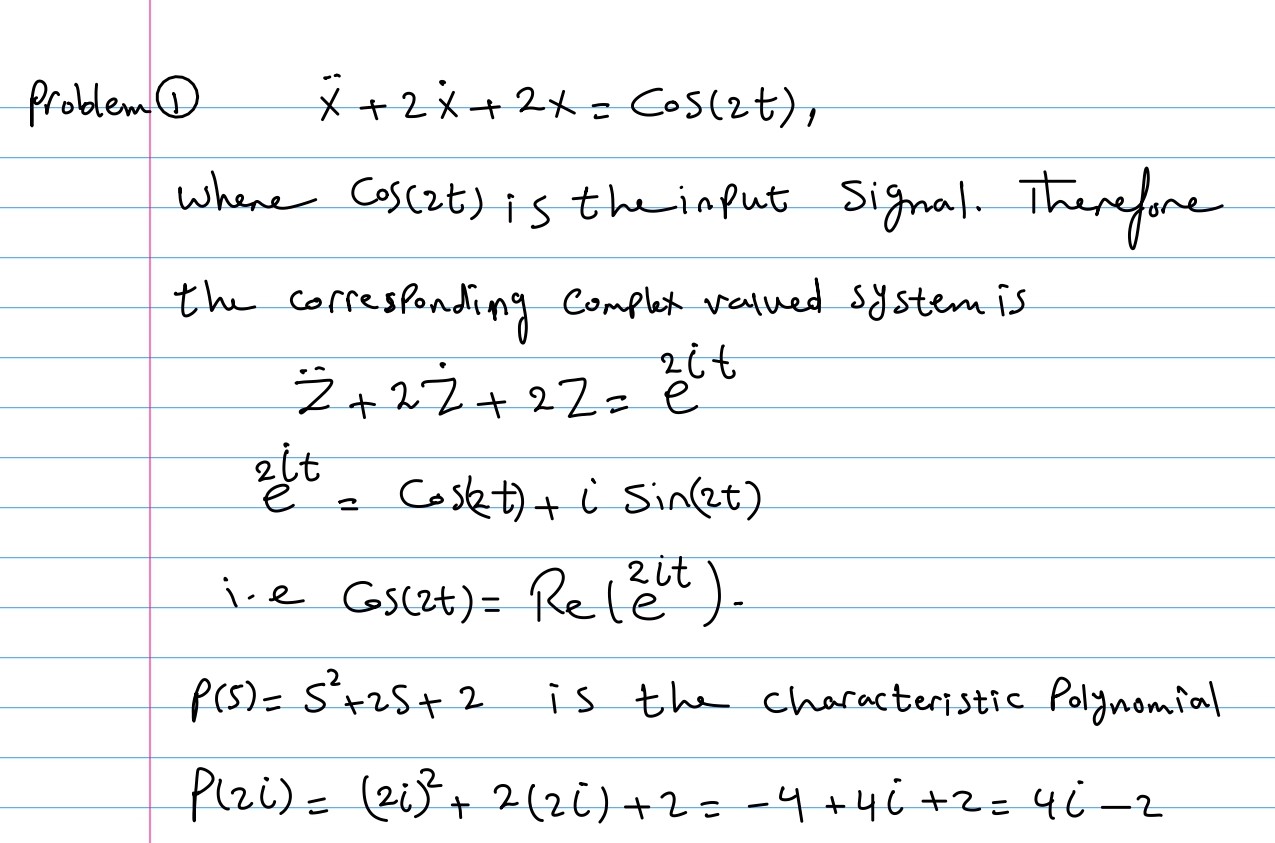 Problem ① ẍ + 2ẋ + 2x = Cos(2t),
where Cos(2t) is the input signal. Therefore
the corresponding complex valued system is
Z̈ + 2Ż + 2Z = e^{2it}
e^{2it} = Cos(2t) + i Sin(2t)
i.e Cos(2t) = Re(e^{2it}).
P(S) = S² + 2S + 2 is the characteristic Polynomial
P(2i) = (2i)² + 2(2i) + 2 = -4 + 4i + 2 = 4i - 2